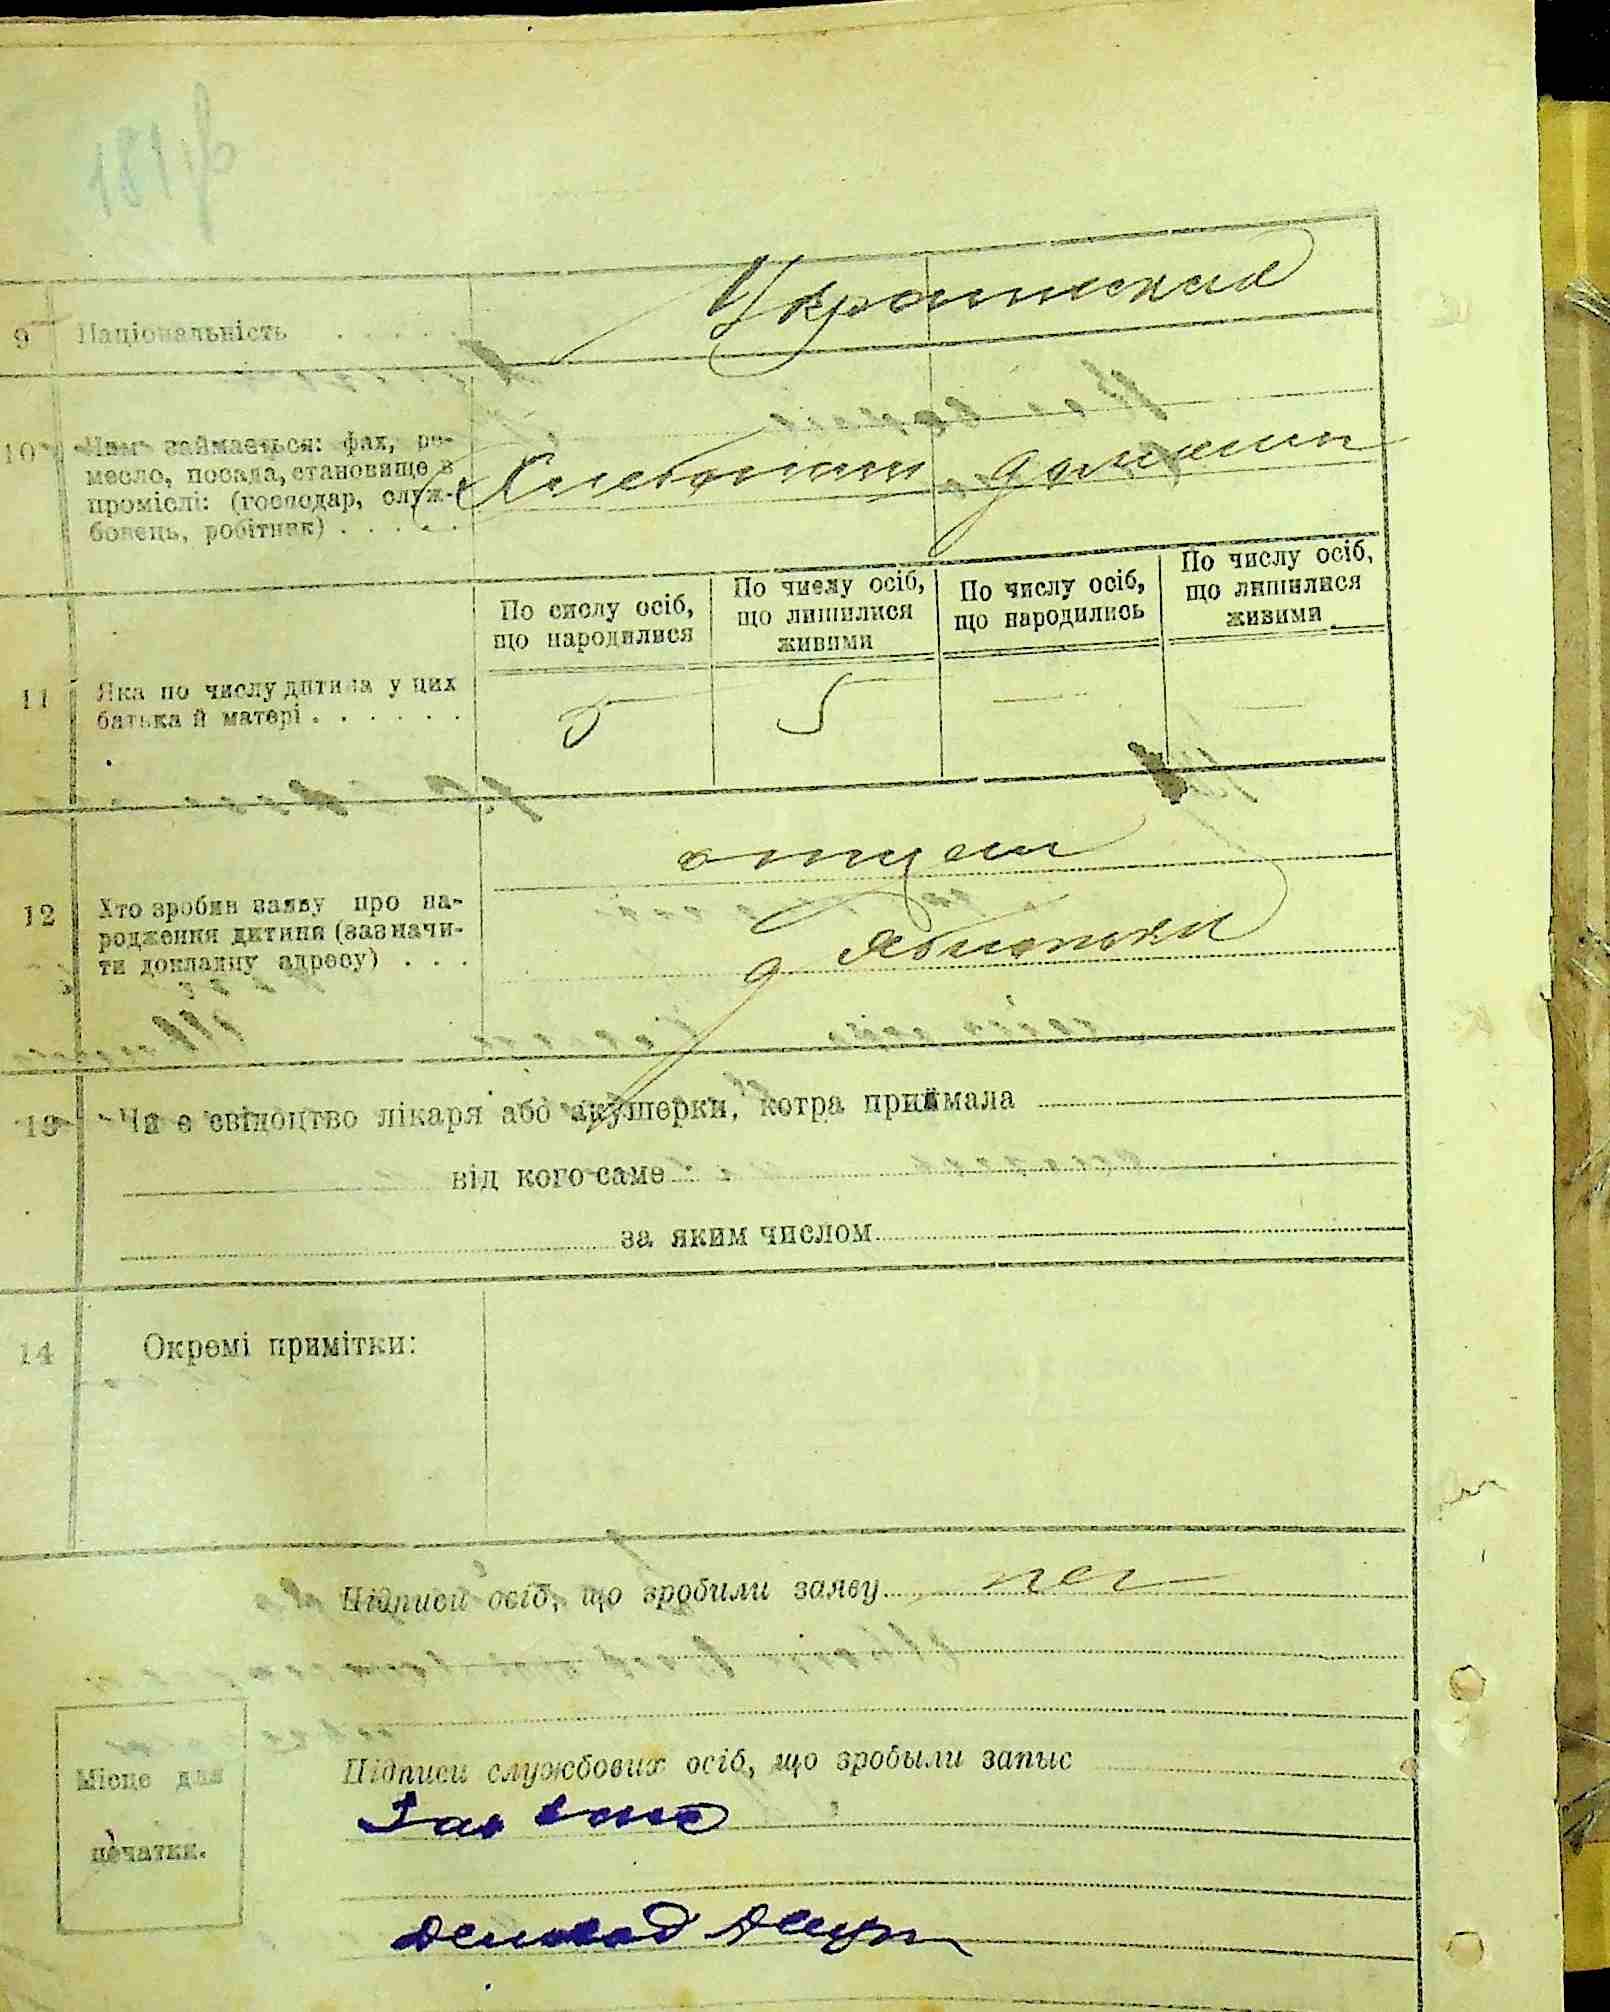 9 Національність . . . . Украинская
10 Чим займається: фах, ре-
месло, посада, становище в
промислі: (господар, служ-
бовець, робітник) . . . . .
Хлебопаш. домашн
По сислу осіб,
що народилися
По числу осіб,
що лишилися
живими
По числу осіб,
що народились
По числу осіб,
що лишилися
живими
11 Яка по числу дитина у цих
батька й матері . . . . . .
5 5 — —
12 Хто зробив заяву про на-
родження дитини (зазначи-
ти докладну адресу) . . .
отцем
д Яблоньки
13 Чи є свідоцтво лікаря або акушерки, котра приймала
від кого саме
за яким числом
14 Окремі примітки:
Підписи осіб, що зробили заяву нег
Місце для
печатки.
Підписи службових осіб, що зробыли запыс